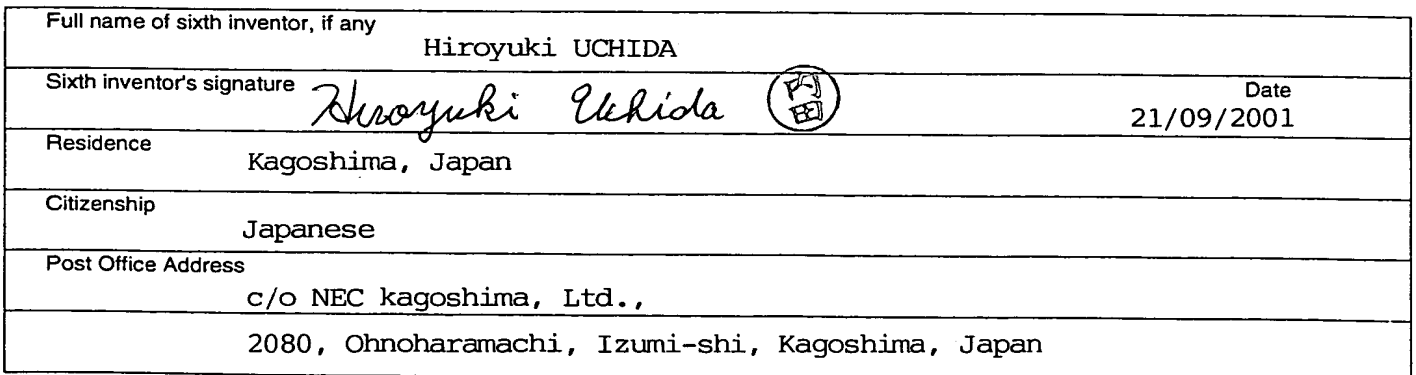 Full name of sixth inventor, if any
Hiroyuki UCHIDA
Sixth inventor's signature Hiroyuki Uchida 内田 Date
21/09/2001
Residence
Kagoshima, Japan
Citizenship
Japanese
Post Office Address
c/o NEC kagoshima, Ltd.,
2080, Ohnoharamachi, Izumi-shi, Kagoshima, Japan